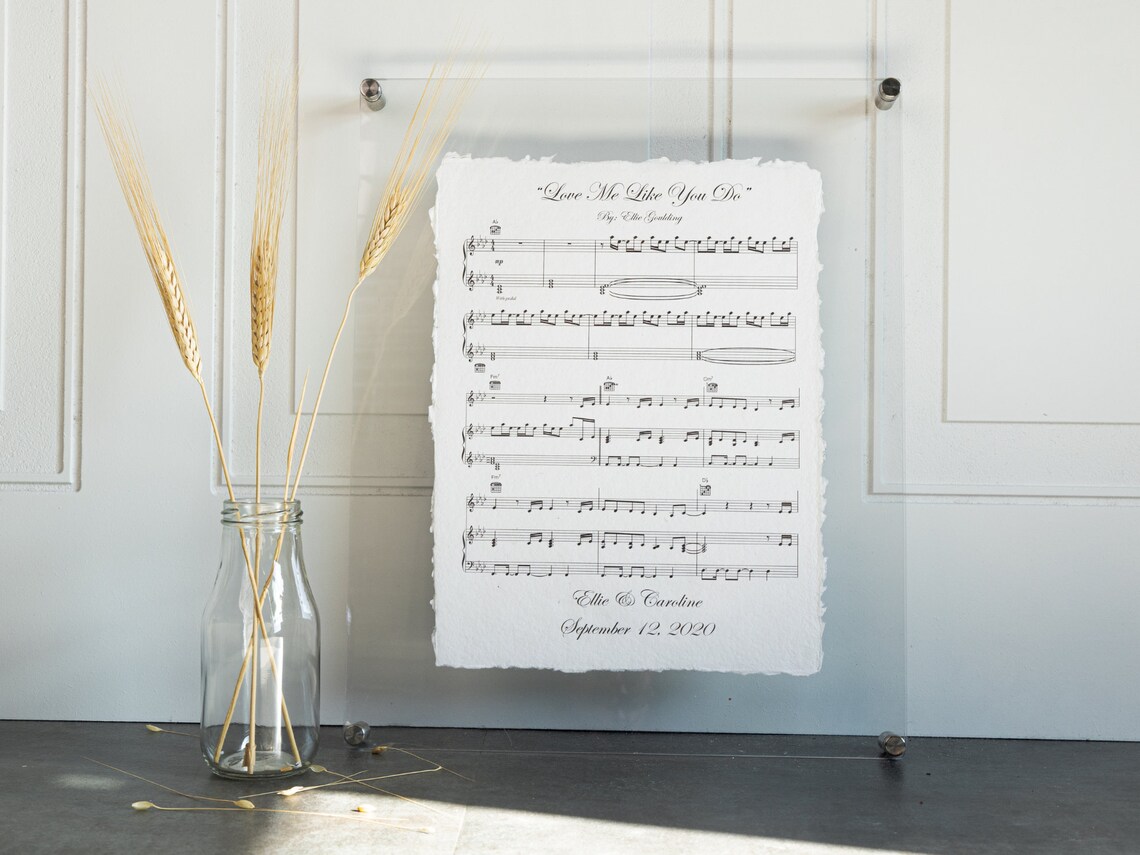 "Love Me Like You Do"
By: Ellie Goulding
A♭
mp
With pedal
Fm⁷
A♭
Cm⁷
Fm⁷
D♭
Ellie & Caroline
September 12, 2020